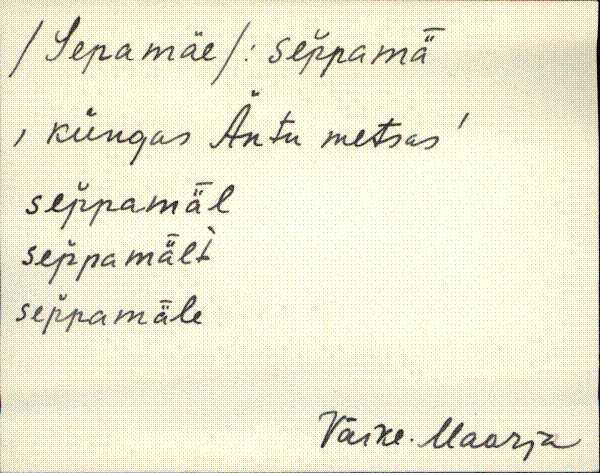 /Sepamäe/: sep̆pamǟ
, küngas Äntu metsas'
sep̆pamǟl
sep̆pamǟlt̀
sep̆pamǟle
Väike-Maarja